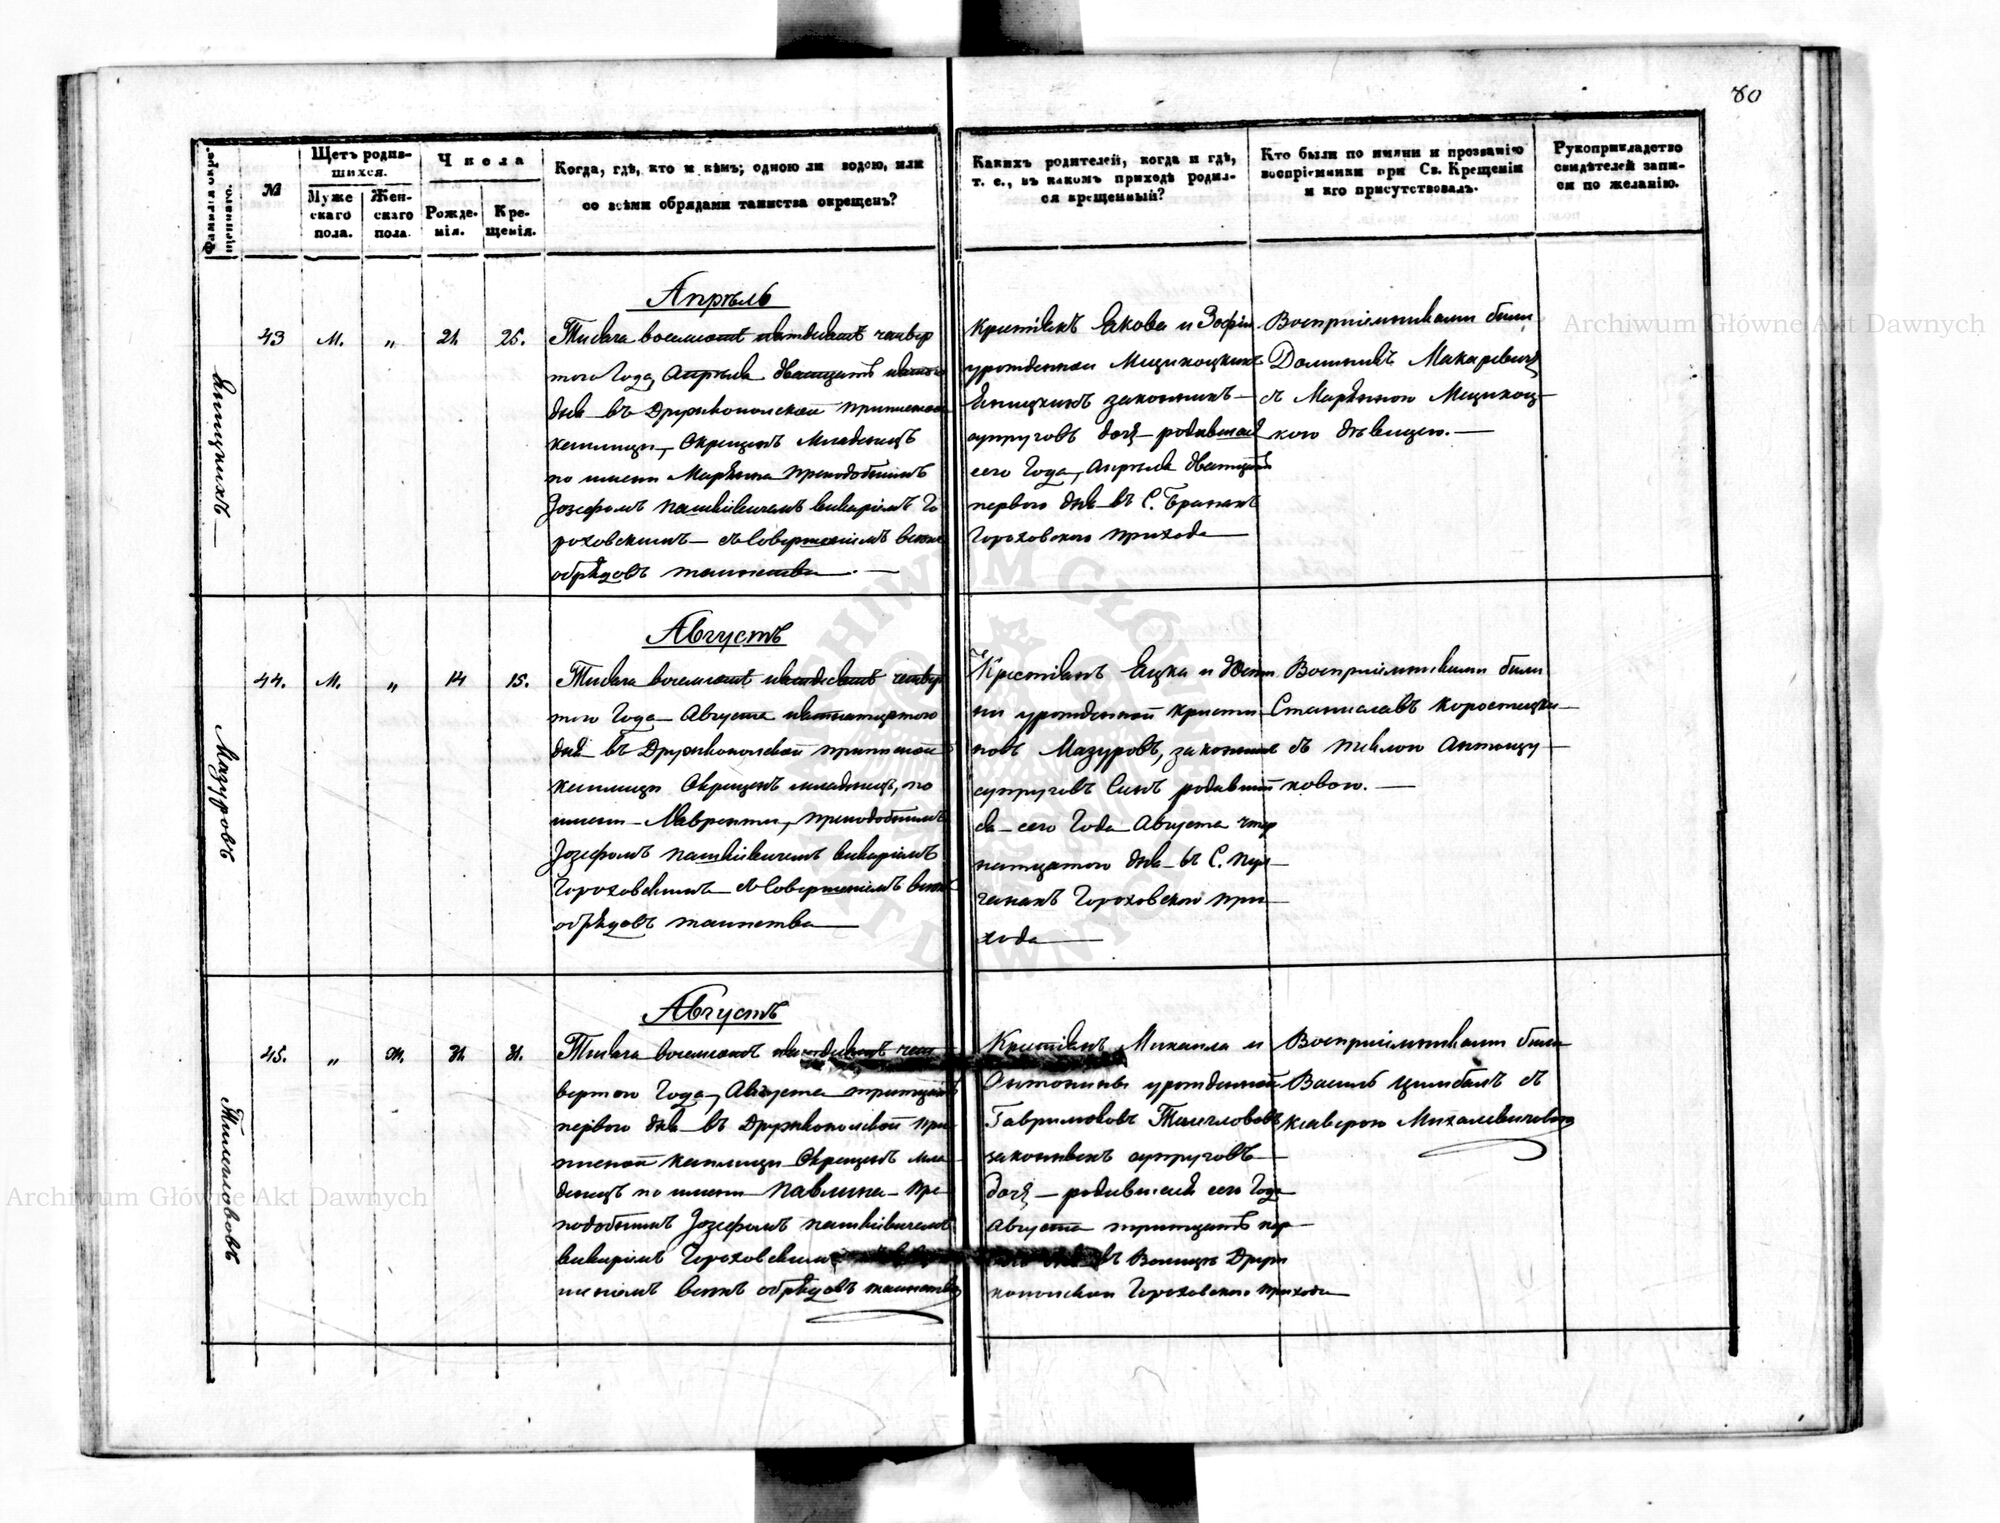 80
Фамилія окре-
щеннаго.
№
Щетъ родив-
шихся.
Муже
скаго
пола.
Жен-
скаго
пола.
Числа
Рожде-
нія.
Кре-
щенія.
Когда, гдѣ, кто и кѣмъ; одною ли водою, или
со всѣми обрядами таинства окрещенъ?
Какихъ родителей, когда и гдѣ,
т. е., въ какомъ приходѣ родил-
ся крещенный?
Кто были по имяни и прозванію
воспріемники при Св. Крещеніи
и кто присутствовалъ.
Рукоприкладство
свидѣтелей запи-
си по желанію.
Апрѣль
43
М.
"
21.
25.
Тисяча восемсотъ четвер
того Года, Апрѣля дватцать пятого
дня въ Дружкопольской приписной
каплици, Окрещенъ Младенецъ
по имени Марьяна преподобнимъ
Іозефомъ Пашкевичемъ викаріемъ Го
роховскимъ съ Совершеніемъ всѣхъ
обрядовъ таинства.
Крестянъ Якова и Зофіи
урожденной Мщихоцкихъ
законныхъ
супруговъ дочь родившая
сего Года, Апрѣля дватцать
первого дня въ С.
Гороховского прихода
Воспріемниками были
Доминикъ Макаревичъ
съ Марьяною
кою дѣвицею.
Августъ
44.
М.
"
14
15.
Мазуровъ
Тисяча восемсотъ четвер
того Года Августа пятнатцатого
дня въ Дружкопольской приписной
каплици Окрещенъ младенецъ, по
имени Лаврентій, преподобнимъ
Іозефомъ Пашкевичемъ викаріемъ
Гороховскимъ съ Совершеніемъ всѣхъ
обрядовъ таинства
Крестянъ Яцка и
ни урожденной Кристи
новъ Мазуровъ, законныхъ
супруговъ Синъ родивший
ся сего Года Августа четир
натцатого дня въ С.
Гороховского при
хода
Воспріемниками были
Станиславъ Коростецки
съ Теклою Антощу
ковою.
Августъ
45.
"
Ж.
31.
31.
Тисяча восемсотъ чет
вертого Года, Августа тритцать
первого дня въ Дружкопольской при
писной каплици Окрещенъ мла
денецъ по имени Павлина пре
подобнимъ Іозефомъ Пашкевичемъ
викаріемъ Гороховскимъ
шеніемъ всѣхъ обрядовъ таинства
Крестянъ Михаила и
Антонини урожденной
Гавриловохъ
законныхъ супруговъ
дочь родившая сего Года
Августа тритцать пер
въ Волицѣ Друж
копольской Гороховского прихода
Воспріемниками были
Василь Цимбалъ съ
Ксаверою Михалевичовою
Archiwum Główne Akt Dawnych
Archiwum Główne Akt Dawnych